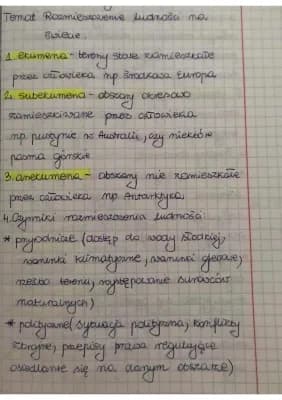 Temat Rozmieszczenie ludności na
świecie.
1. ekumena - tereny stale zamieszkałe
przez człowieka np. środkowa Europa
2. subekumena - obszary okresowo
zamieszkiwane przez człowieka
np pustynie w Australii, czy niektóre
pasma górskie
3. anekumena - obszary nie zamieszkałe
przez człowieka np. Antarktyka.
4. Czynniki rozmieszczenia ludności
* przyrodnicze (dostęp do wody słodkiej,
warunki klimatyczne, warunki glebowe,
rzeźba terenu, występowanie surowców
naturalnych)
* polityczne (sytuacja polityczna, konflikty
zbrojne, przepisy prawa regulujące
osiedlanie się na danym obszarze)